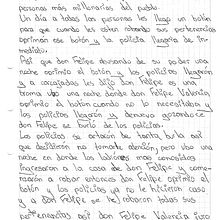 personas más millonarias del pueblo.
Un día a todas las personas les llego un botón
para que cuando les esten robando sus pertenencias
oprimían ese botón y la policía llegaría de in-
mediato.
Así que don Felipe abusando de su poder una
noche oprimió el botón y los policías llegarón
y a carcajadas les dijo don Felipe es una
broma vbo una noche donde don Felipe Valencia
oprimió el botón cuando no lo necesitaba y
los policías llegarón y denuevo aprendece
don Felipe se burló de los policías.
Los policías se artaron de tanta burla así
que decidieron no tomarle atención, pero vbo una
noche en donde los ladrones mas conocidos
Ingresaron a la casa de don Felipe y come-
nzarón a robar entonces don Felipe oprimió el
botón y los policías ya no le hicieron caso
y a Don Felipe se le robaron todas sus
pertenencias así don Felipe Valencia tuvo